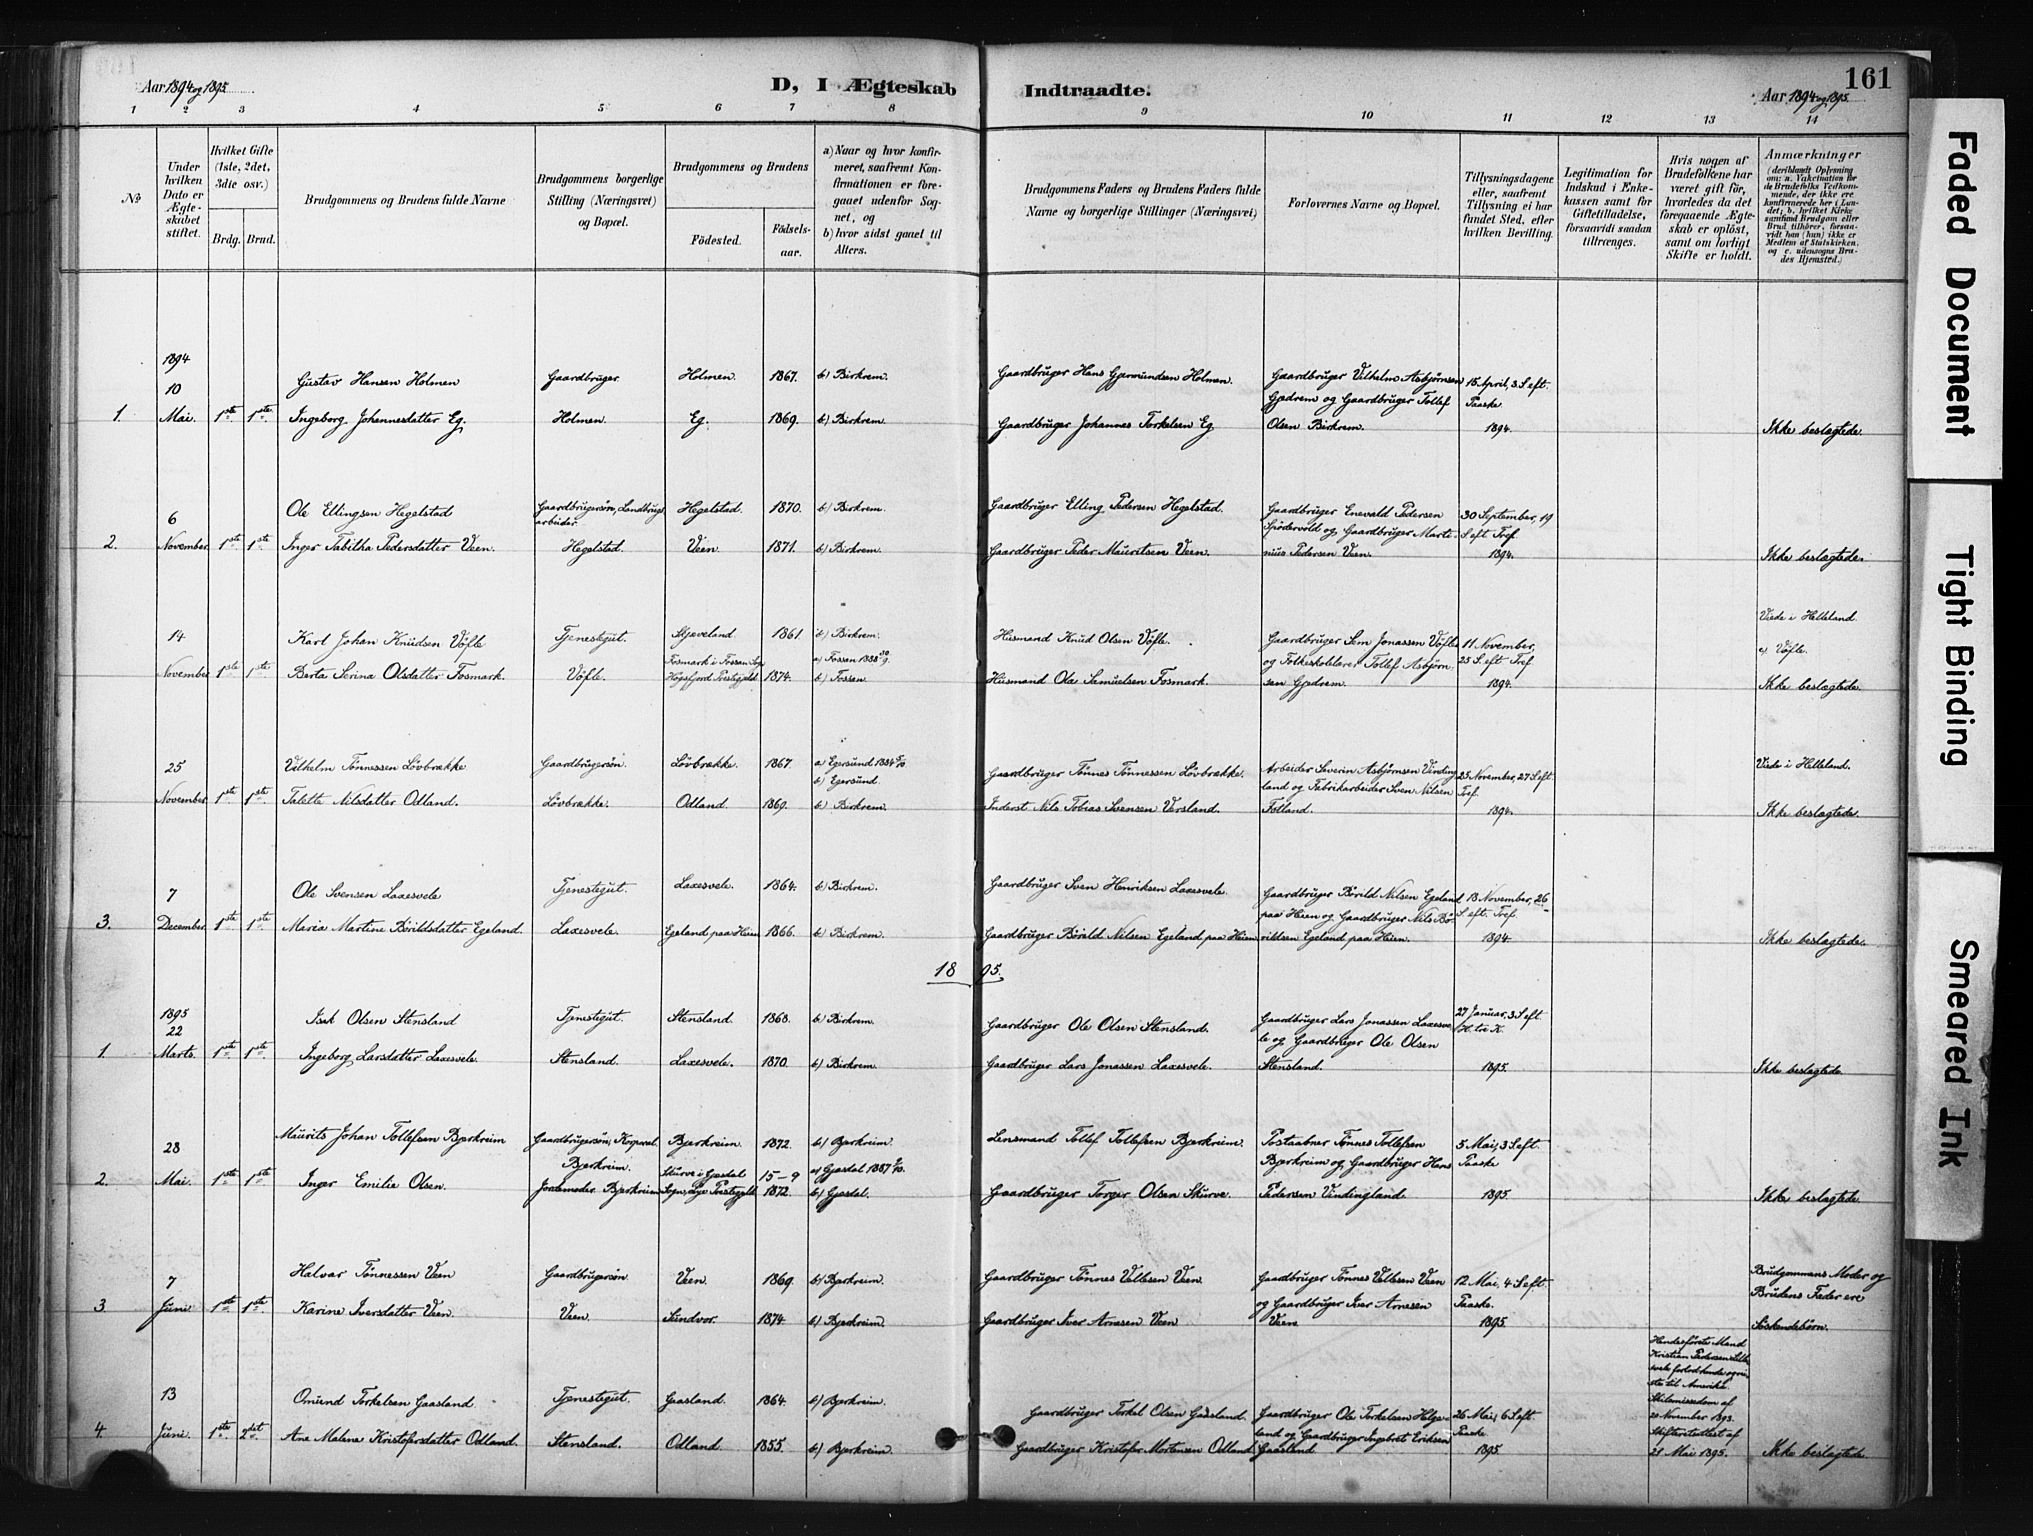 161
Aar 1894 og 1895
D, I Ægteskab Indtraadte.
Aar 1894 og 1895
1 2 3 4 5 6 7 8 9 10 11 12 13 14
№
Under hvilken Dato er Ægteskabet stiftet.
Hvilket Gifte (1ste, 2det, 3die osv.)
Brdg. Brud.
Brudgommens og Brudens fulde Navne
Brudgommens borgerlige Stilling (Næringsvei) og Bopæl.
Brudgommens og Brudens
Födested.
Födselsaar.
a) Naar og hvor konfirmeret, saafremt Konfirmationen er foregaaet udenfor Sognet, og
b) hvor sidst gaaet til Alters.
Brudgommens Faders og Brudens Faders fulde Navne og borgerlige Stillinger (Næringsvei)
Forlovernes Navne og Bopæl.
Tillysningsdagene eller, saafremt Tillysning ei har fundet Sted, efter hvilken Bevilling.
Legitimation for Indskud i Enkekassen samt for Giftetilladelse, forsaavidt saadan tiltrænges.
Hvis nogen af Brudefolkene har været gift för, hvorledes da det foregaaende Ægteskab er oplöst, samt om lovligt Skifte er holdt.
Anmærkninger
(deriblandt Oplysning om: a. Vakcination for de Brudefolks Vedkommende, der ikke ere konfirmerede her i Landet; b. hvilket Kirkesamfund Brudgom eller Brud tilhörer, forsaavidt han (hun) ikke er Medlem af Statskirken, og c. udensogns Brudes Hjemsted.)
1894
10 Gustav Hansen Holmen Gaardbruger Holmen. 1867. b) Birkrem. Gaardbruger Hans Gjermundsen Holmen. Gaardbruger Vilhelm Asbjørnsen 15 April, 3 S. eft.
Gjedrem og Gaardbruger Tollef Paaske
1. Mai. 1ste 1ste Ingeborg Johannesdatter Eg. Holmen. Eg. 1869. b) Birkrem. Gaardbruger Johannes Torkelsen Eg Olsen Birkrem. 1894. Ikke beslægtede.
6 Ole Ellingsen Hegelstad Gaardbrugersøn, Landbrugsarbeider. Hegelstad. 1870. b) Birkrem. Gaardbruger Elling Pedersen Hegelstad. Gaardbruger Enevald Pedersen 30 September, 19
Spødervold og Gaardbruger Marti- S. eft Tref
2. November 1ste 1ste Inger Tabitha Pedersdatter Veen. Hegelstad. Veen. 1871. b) Birkrem. Gaardbruger Peder Mauritsen Veen. nius Pedersen Veen. 1894. Ikke beslægtede.
Viede i Helleland.
14 Karl Johan Knudsen Vöfle Tjenestegut. Skjæveland 1861. b) Birkrem. Husmand Knud Olsen Vöfle. Gaardbruger Sem Jonassen Vöfle 11 November, c) Vöfle.
Fosmark i Fossan Sogn a) Fossan 1888 og Folkeskolelærer Tollef Asbjörn- 25 S. eft Tref
November 1ste 1ste Berta Serina Olsdatter Fosmark. Vöfle. Högsfjord Prestegjeld 1874. b) Fossan. Husmand Ola Samuelsen Fosmark. sen Gjedrem. 1894. Ikke beslægtede.
25 Vilhelm Tönnessen Lövbrække Gaardbrugersøn. Lövbrække. 1867. a) Egersund 1884 Gaardbruger Tönnes Tönnessen Lövbrække. Arbeider Severin Asbjörnsen Vinding- 25 November, 27 S eft Viede i Helleland.
b) Egersund. land og Fabrikarbeider Sven Nilsen Tref.
November 1ste 1ste Talette Nilsdatter Odland. Lövbrække. Odland 1869. b) Birkrem. Inderst Nils Tobias Svensen Versland. Fotland. 1894. Ikke beslægtede.
7 Ole Svensen Laxesvele Tjenestegut. Laxesvele. 1864. b) Birkrem. Gaardbruger Sven Henriksen Laxesvele. Gaardbruger Börild Nilsen Egeland 18 November, 26
paa Heien og Gaardbruger Nils Bö- S. eft. Tref.
3. December 1ste 1ste Maria Martine Börildsdatter Egeland. Laxesvele. Egeland paa Heien 1866. b) Birkrem. Gaardbruger Börild Nilsen Egeland paa Heien. rildsen Egeland paa Heien. 1894 Ikke beslægtede.
1895.
1895
22 Isak Olsen Stensland Tjenestegut. Stensland. 1868. b) Birkrem. Gaardbruger Ole Olsen Stensland. Gaardbruger Lars Jonassen Laxesve- 27 Januar, 3 S. eft
le og Gaardbruger Ole Olsen H. tre K.
1. Marts. 1ste 1ste Ingeborg Larsdatter Laxesvele. Stensland. Laxesvele. 1870. b) Birkrem. Gaardbruger Lars Jonassen Laxesvele. Stensland. 1895. Ikke beslægtede.
28 Maurits Johan Tollefsen Bjerkreim Gaardbrugersøn, Korporal. Bjerkreim. Bjerkreim. 1872. b) Bjerkreim. Lensmand Tollef Tollefsen Bjerkreim. Postaabner Tönnes Tollefsen 5 Mai, 3 S eft
Skurve i Gjesdal 15-9 a) Gjesdal 1887 Bjerkreim og Gaardbruger Hans Paaske
2. Mai. 1ste 1ste Inger Emilie Olsen. Jordemoder Bjerkreim Sogn, Lye Prestegjeld 1872. b) Gjesdal. Gaardbruger Torger Olsen Skurve. Pedersen Vindingland. 1895. Ikke beslægtede.
7 Halvar Tönnessen Veen Gaardbrugersøn Veen. 1869. b) Bjerkreim. Gaardbruger Tönnes Vellesen Veen. Gaardbruger Tönnes Vellesen Veen 12 Mai, 4 S eft Brudgommens Moder og
og Gaardbruger Iver Arnesen Paaske. Brudens Fader ere
3 Juni 1ste 1ste Karine Iversdatter Veen. Veen. Sundvor. 1874 b) Bjerkreim. Gaardbruger Iver Arnesen Veen Veen 1895. Söskendebörn.
Hendes förste Mand Kristian Pedersen forlod hende og reiste til Amerika. Skilsmissedom af 20 November 1893. Skifterettsattest af 21 Mai 1895.
13 Omund Torkelsen Gaasland Tjenestegut. Gaasland. 1864. b) Bjerkreim. Gaardbruger Torkel Olsen Gaasland. Gaardbruger Ole Torkelsen Helge- 26 Mai, 6 S eft
land og Gaardbruger Ingebret Eriksen Paaske
4. Juni. 1ste 2det Ane Malene Kristofersdatter Odland. Stensland. Odland. 1855. b) Bjerkreim. Gaardbruger Kristofer Mortensen Odland Gaasland 1895 Ikke beslægtede.
Faded Document
Tight Binding
Smeared Ink